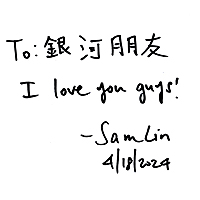 To: 銀河朋友
I love you guys!
-Sam Lin
4/18/2024